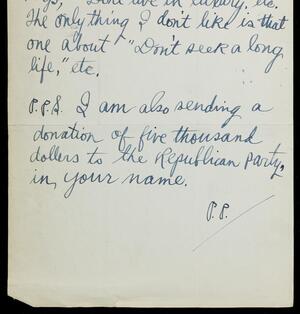 "Don't live in luxury, etc.
The only thing I don't like is that
one about "Don't seek a long
life," etc.
P.P.S. I am also sending a
donation of five thousand
dollers to the Republican Party,
in your name.
P.P.